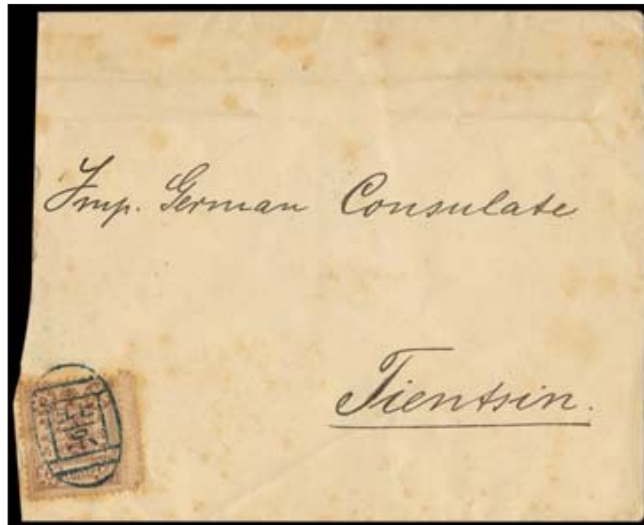 Imp. German Consulate
Tientsin.